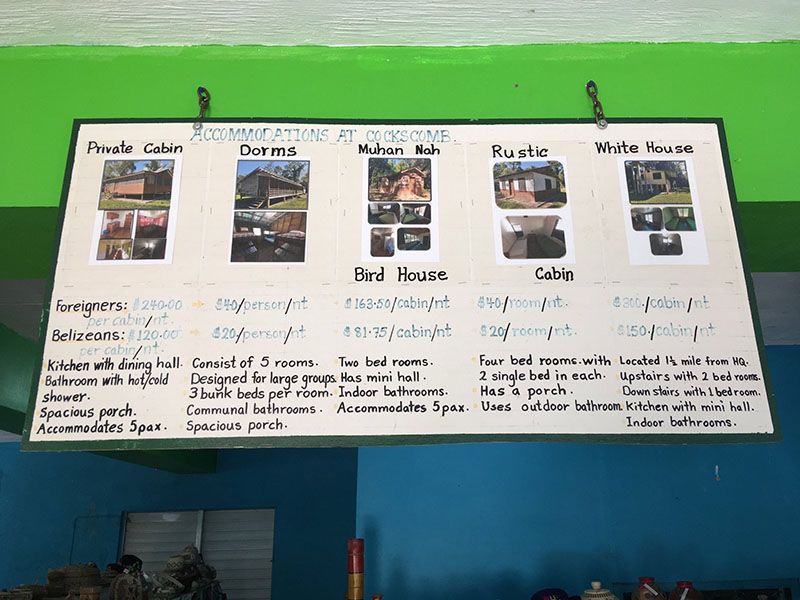 ACCOMMODATIONS AT COCKSCOMB.
Private Cabin
Dorms
Muhan Nah
Bird House
Rustic
Cabin
White House
Foreigners: $240.00 per cabin/nt.
$40/person/nt
$163.50/cabin/nt
$40/room/nt.
$300/cabin/nt
Belizeans: $120.00 per cabin/nt.
$20/person/nt
$81.75/cabin/nt
$20/room/nt
$150/cabin/nt
Kitchen with dining hall.
Bathroom with hot/cold
shower.
Spacious porch.
Accommodates 5pax.
Consist of 5 rooms.
Designed for large groups.
3 bunk beds per room.
Communal bathrooms.
Spacious porch.
Two bed rooms.
Has mini hall.
Indoor bathrooms.
Accommodates 5pax.
Four bed rooms with
2 single bed in each.
Has a porch.
Uses outdoor bathroom.
Located 1½ mile from HQ.
Upstairs with 2 bed rooms.
Down stairs with 1 bed room.
Kitchen with mini hall.
Indoor bathrooms.